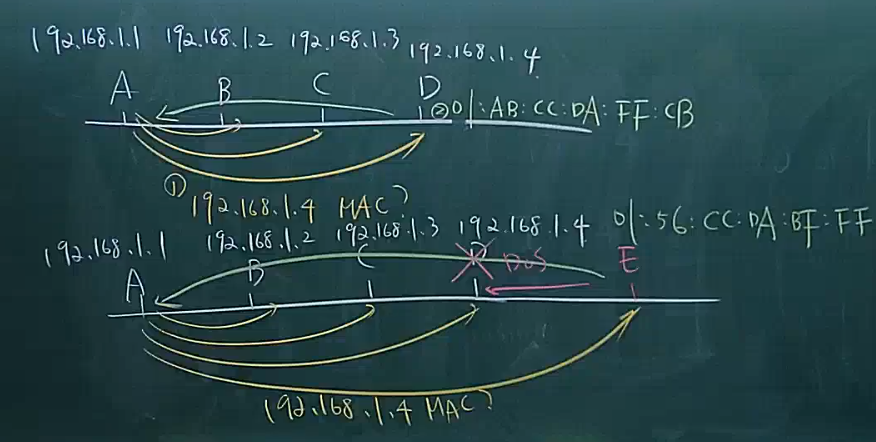 192.168.1.1 192.168.1.2 192.168.1.3 192.168.1.4
A B C D ②01:AB:CC:DA:FF:CB
① 192.168.1.4 MAC?
192.168.1.1 192.168.1.2 192.168.1.3 192.168.1.4 01:56:CC:DA:BF:FF
A B C D DoS E
192.168.1.4 MAC?